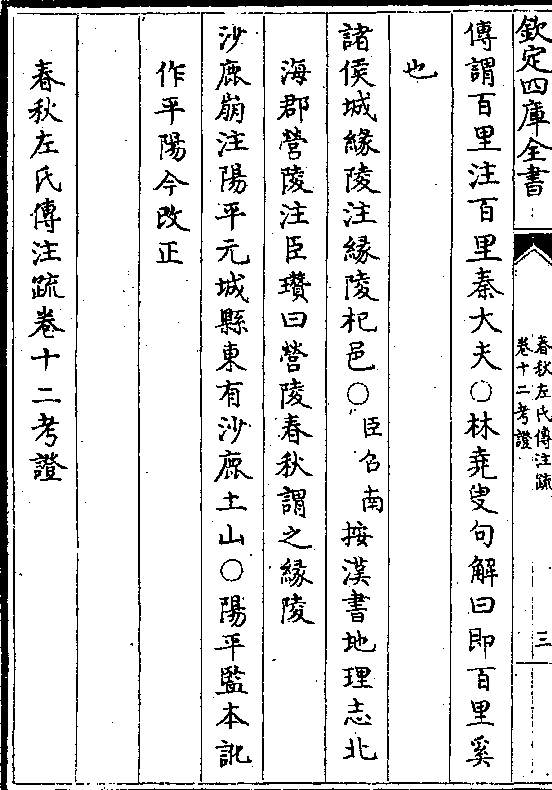 欽定四庫全書
春秋左氏傳注疏
卷十二考證
三
傳謂百里注百里秦大夫○林堯叟句解曰即百里奚
也
諸侯城緣陵注緣陵杞邑○臣召南按漢書地理志北
海郡營陵注臣瓚曰營陵春秋謂之緣陵
沙鹿崩注陽平元城縣東有沙鹿土山○陽平監本訛
作平陽今改正
春秋左氏傳注疏卷十二考證